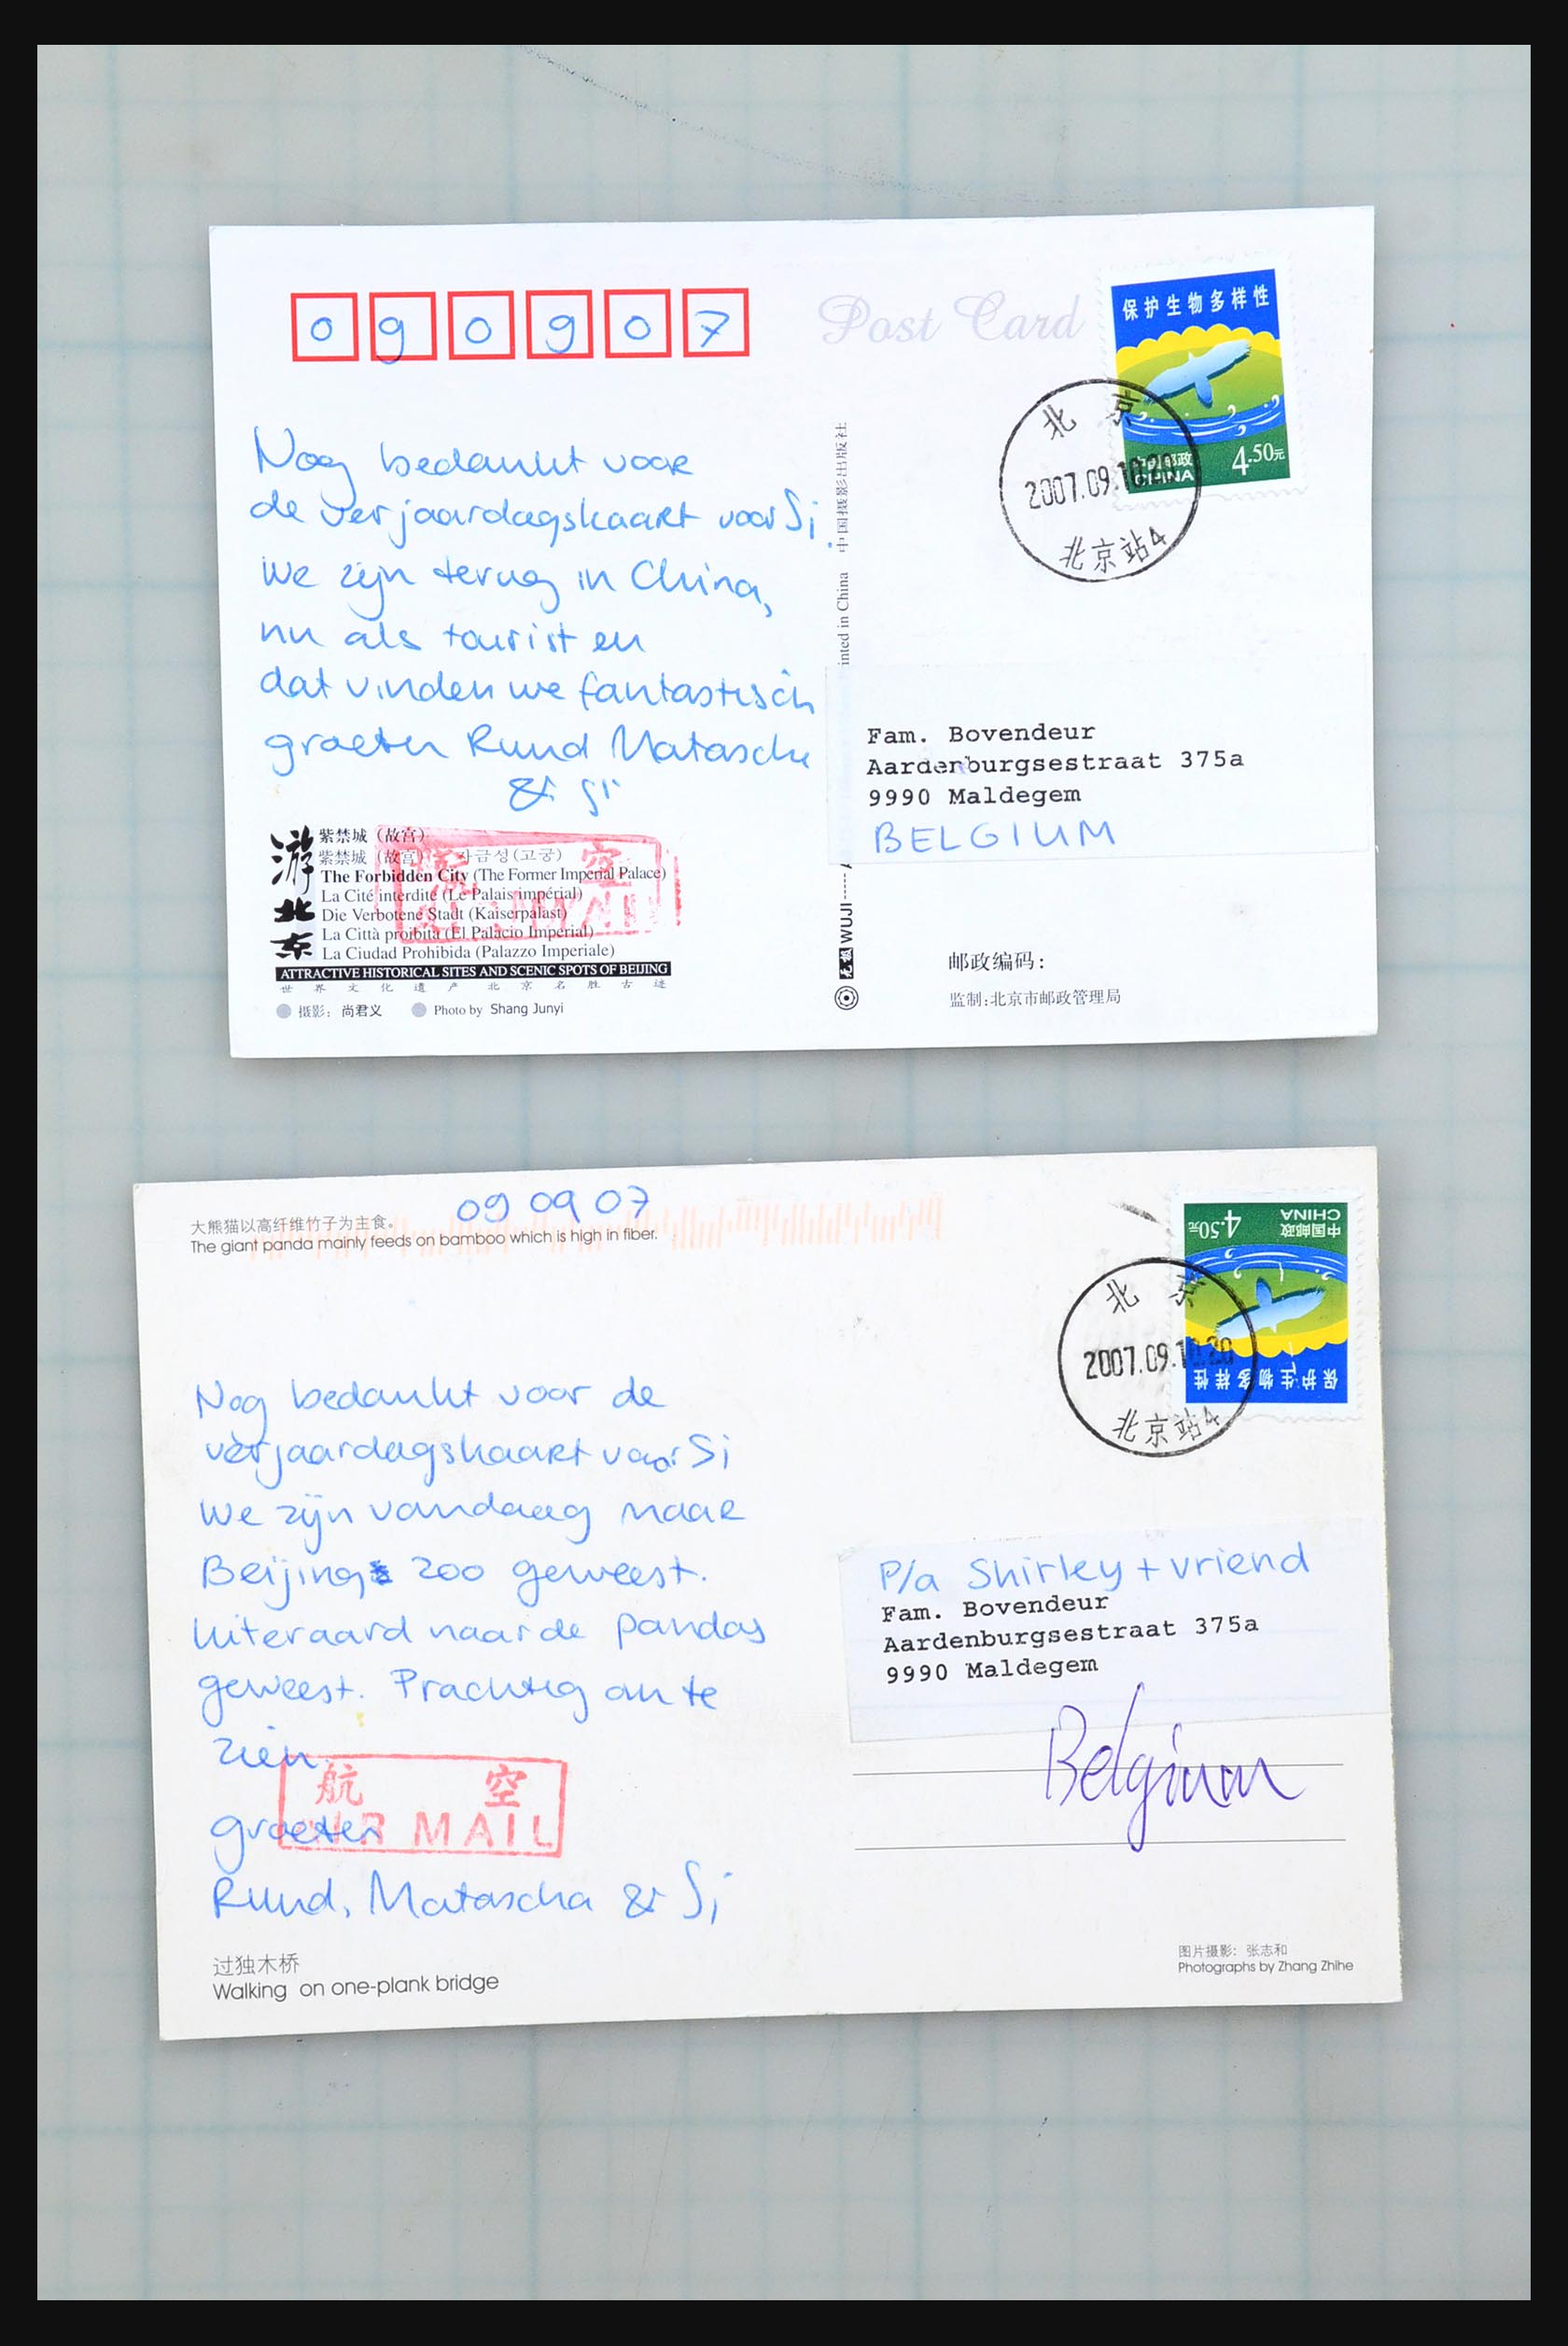 0 9 0 9 0 7
Post Card
保护生物多样性
中国邮政
CHINA
4.50元
北京
2007.09.10.20
北京站4
Nog bedankt voor
de verjaardagskaart voor Si.
We zijn terug in China,
nu als tourist en
dat vinden we fantastisch
groeten Ruud Natascha
& Si
中国摄影出版社
inted in China
WUJI
Fam. Bovendeur
Aardenburgsestraat 375a
9990 Maldegem
BELGIUM
游北京
紫禁城（故宫）
紫禁城（故宫） 자금성(고궁)
The Forbidden City (The Former Imperial Palace)
La Cité interdite (Le Palais impérial)
Die Verbotene Stadt (Kaiserpalast)
La Città proibita (El Palacio Imperial)
La Ciudad Prohibida (Palazzo Imperiale)
航空
AIR MAIL
ATTRACTIVE HISTORICAL SITES AND SCENIC SPOTS OF BEIJING
世界文化遗产北京名胜古迹
摄影：尚君义 Photo by Shang Junyi
邮政编码：
监制：北京市邮政管理局
09 09 07
大熊猫以高纤维竹子为主食。
The giant panda mainly feeds on bamboo which is high in fiber.
保护生物多样性
中国邮政
CHINA
4.50元
北京
2007.09.10.20
北京站4
Nog bedankt voor de
verjaardagskaart voor Si
We zijn vandaag naar
Beijing zoo geweest.
Uiteraard naar de pandas
geweest. Prachtig om te
zien.
航空
AIR MAIL
groeten
Ruud, Natascha & Si
P/a Shirley + vriend
Fam. Bovendeur
Aardenburgsestraat 375a
9990 Maldegem
Belgium
过独木桥
Walking on one-plank bridge
图片摄影：张志和
Photographs by Zhang Zhihe